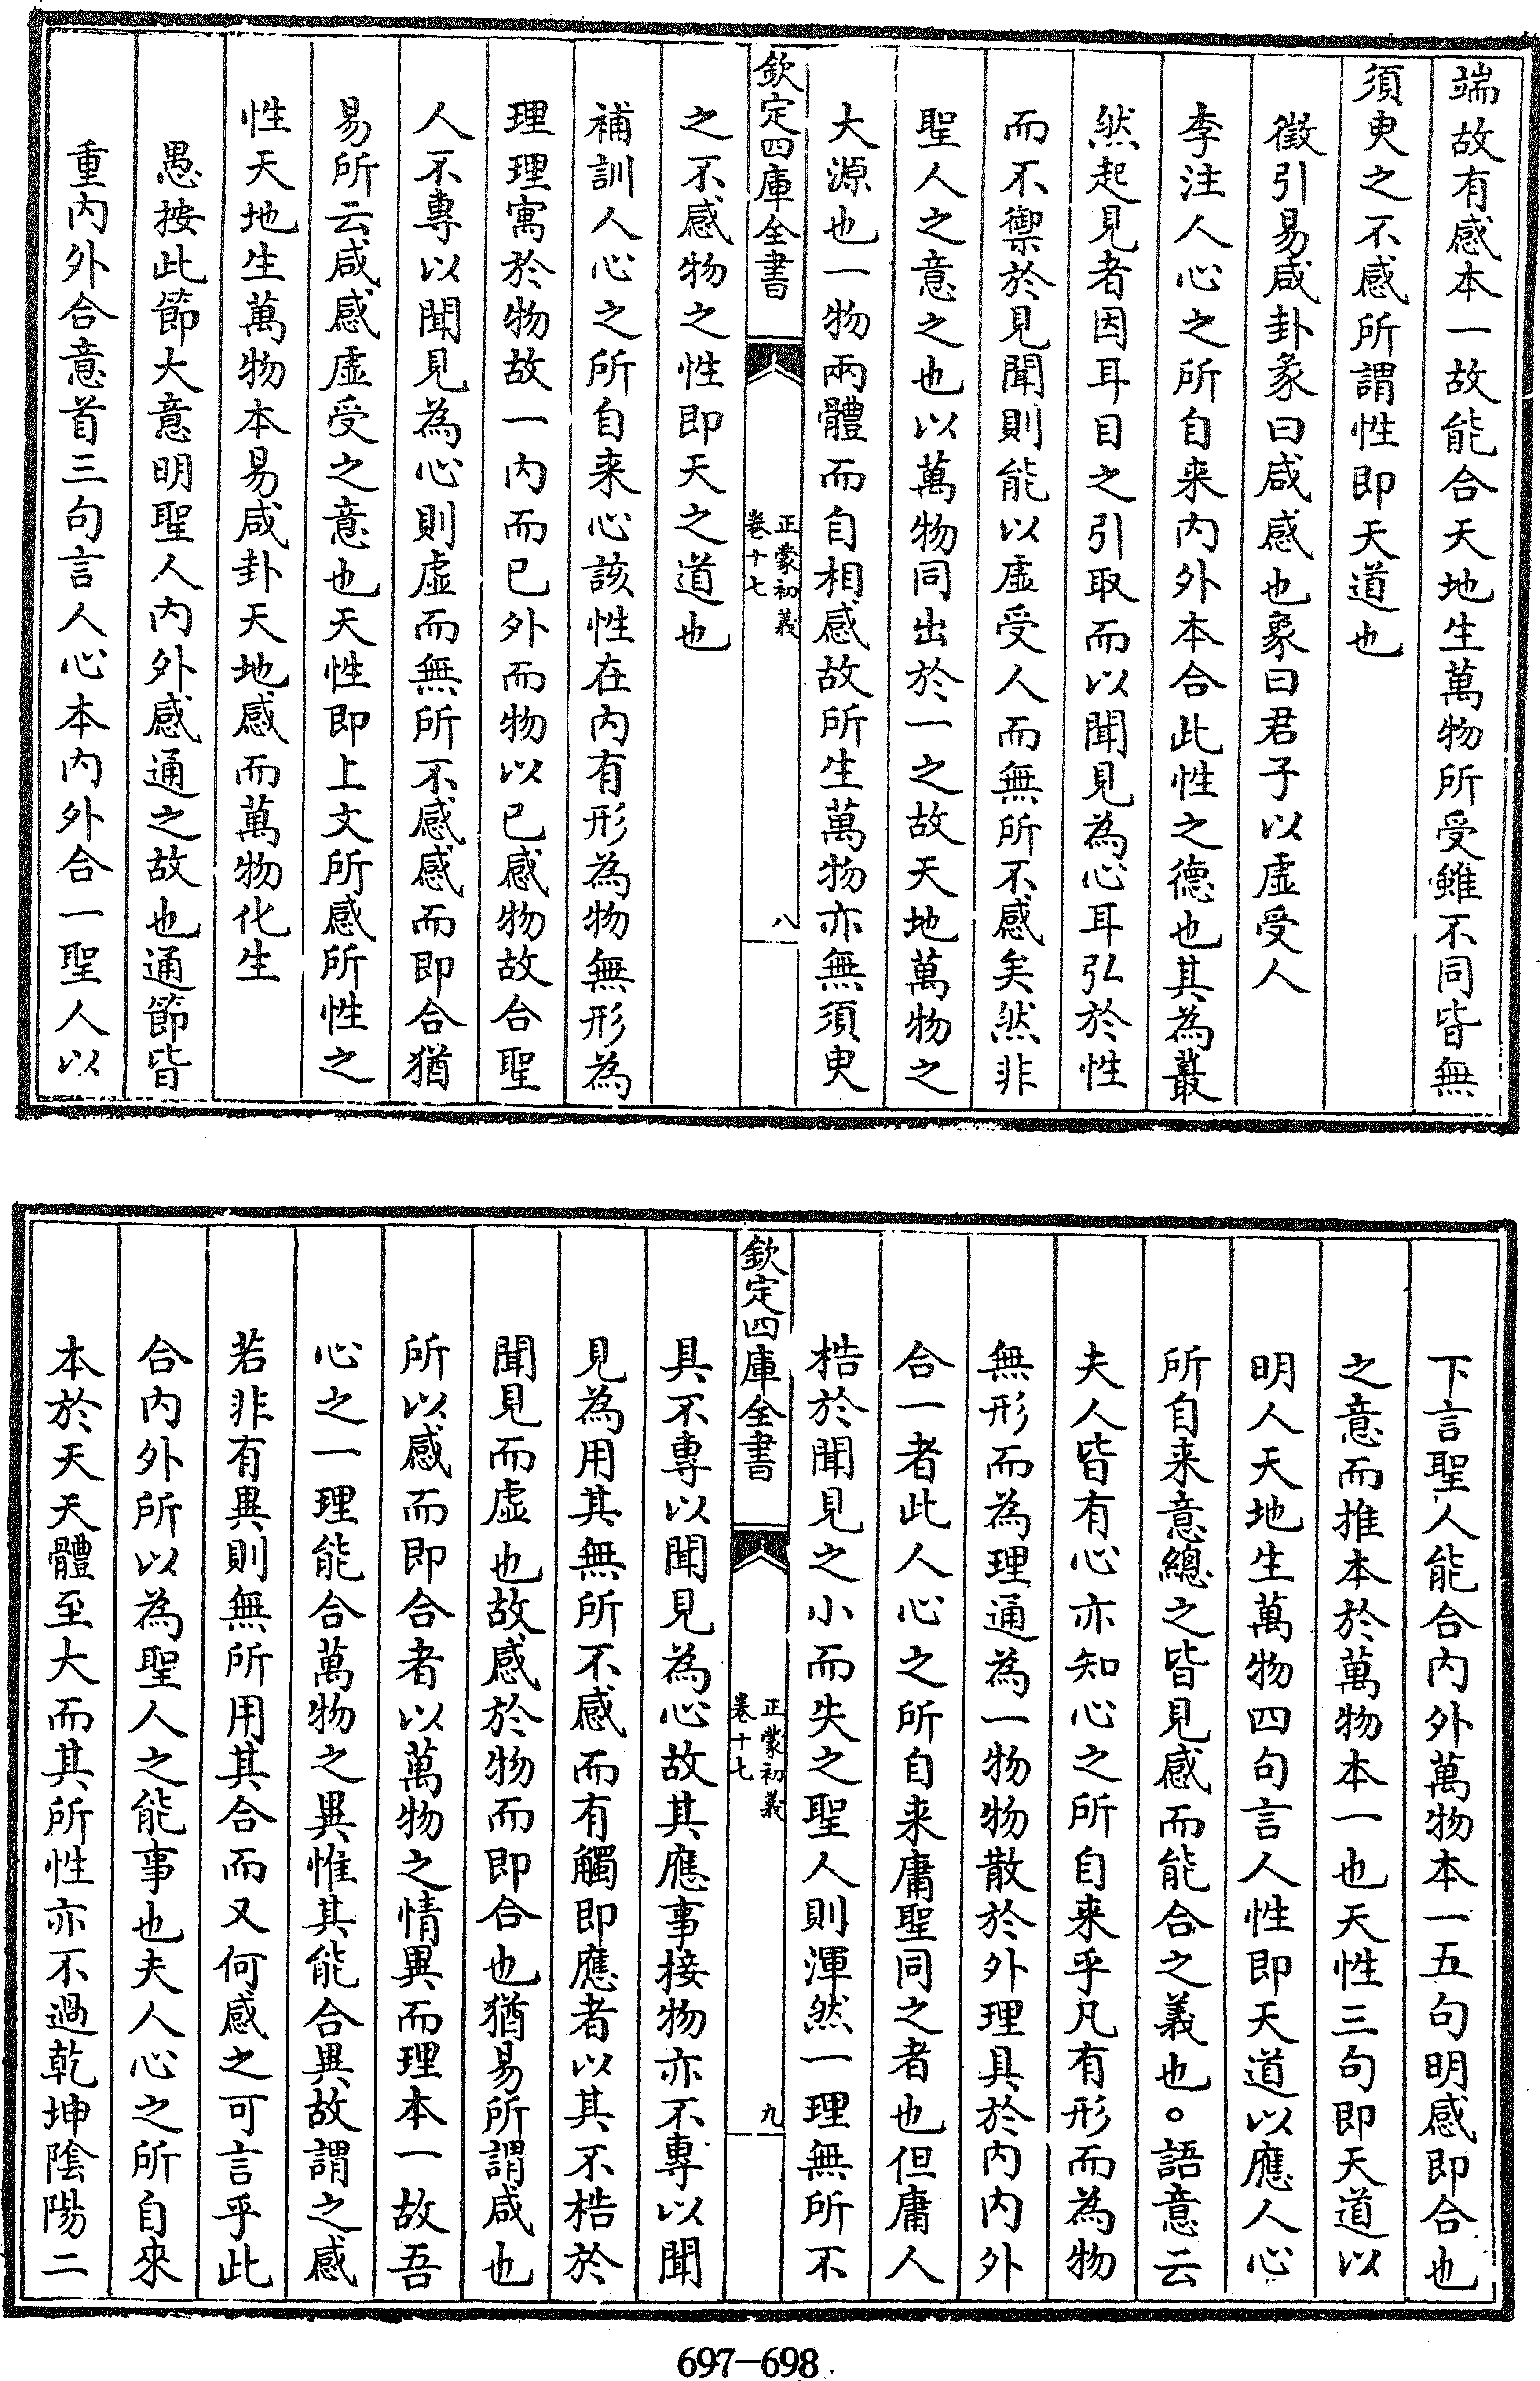 端故有感本一故能合天地生萬物所受雖不同皆無
須臾之不感所謂性即天道也
徵引易咸卦彖曰咸感也象曰君子以虛受人
李注人心之所自来內外本合此性之德也其為叢
然起見者因耳目之引取而以聞見為心耳弘於性
而不禦於見聞則能以虛受人而無所不感矣然非
聖人之意之也以萬物同出於一之故天地萬物之
大源也一物兩體而自相感故所生萬物亦無須臾
欽定四庫全書
正蒙初義
卷十七
八
之不感物之性即天之道也
補訓人心之所自来心該性在內有形為物無形為
理理寓於物故一內而已外而物以已感物故合聖
人不專以聞見為心則虛而無所不感感而即合猶
易所云咸感虛受之意也天性即上文所感所性之
性天地生萬物本易咸卦天地感而萬物化生
愚按此節大意明聖人內外感通之故也通節皆
重內外合意首三句言人心本內外合一聖人以
下言聖人能合內外萬物本一五句明感即合也
之意而推本於萬物本一也天性三句即天道以
明人天地生萬物四句言人性即天道以應人心
所自来意總之皆見感而能合之義也○語意云
夫人皆有心亦知心之所自来乎凡有形而為物
無形而為理通為一物物散於外理具於內內外
合一者此人心之所自来庸聖同之者也但庸人
梏於聞見之小而失之聖人則渾然一理無所不
欽定四庫全書
正蒙初義
卷十七
九
具不專以聞見為心故其應事接物亦不專以聞
見為用其無所不感而有觸即應者以其不梏於
聞見而虛也故感於物而即合也猶易所謂咸也
所以感而即合者以萬物之情異而理本一故吾
心之一理能合萬物之異惟其能合異故謂之感
若非有異則無所用其合而又何感之可言乎此
合內外所以為聖人之能事也夫人心之所自來
本於天天體至大而其所性亦不過乾坤陰陽二
697-698